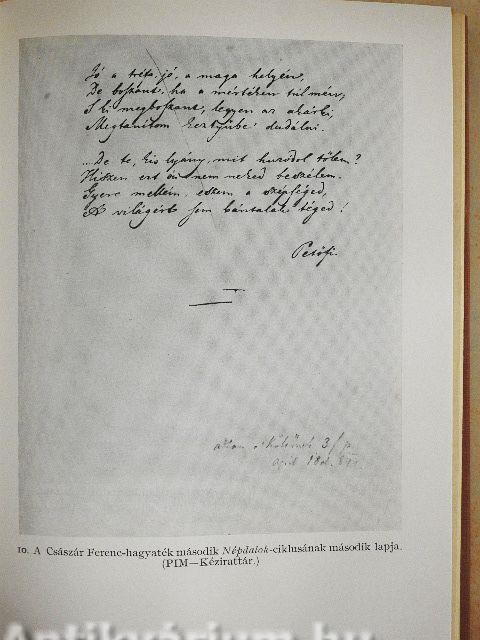 Jó a tréfa, jó, a maga helyén,
De boszant, ha a mértéken túlmén,
S ki megboszant, legyen az akárki,
Megtanítom kesztyűbe dudálni.
...De te, kis lyány, mit huzódol tőlem?
Hiszen ezt én nem neked beszélem.
Gyere mellém, eszem a szépséged,
A világért sem bántalak téged!
Petőfi.
10. A Császár Ferenc-hagyaték második Népdalok-ciklusának második lapja.
(PIM—Kézirattár.)
Antikvárium.hu